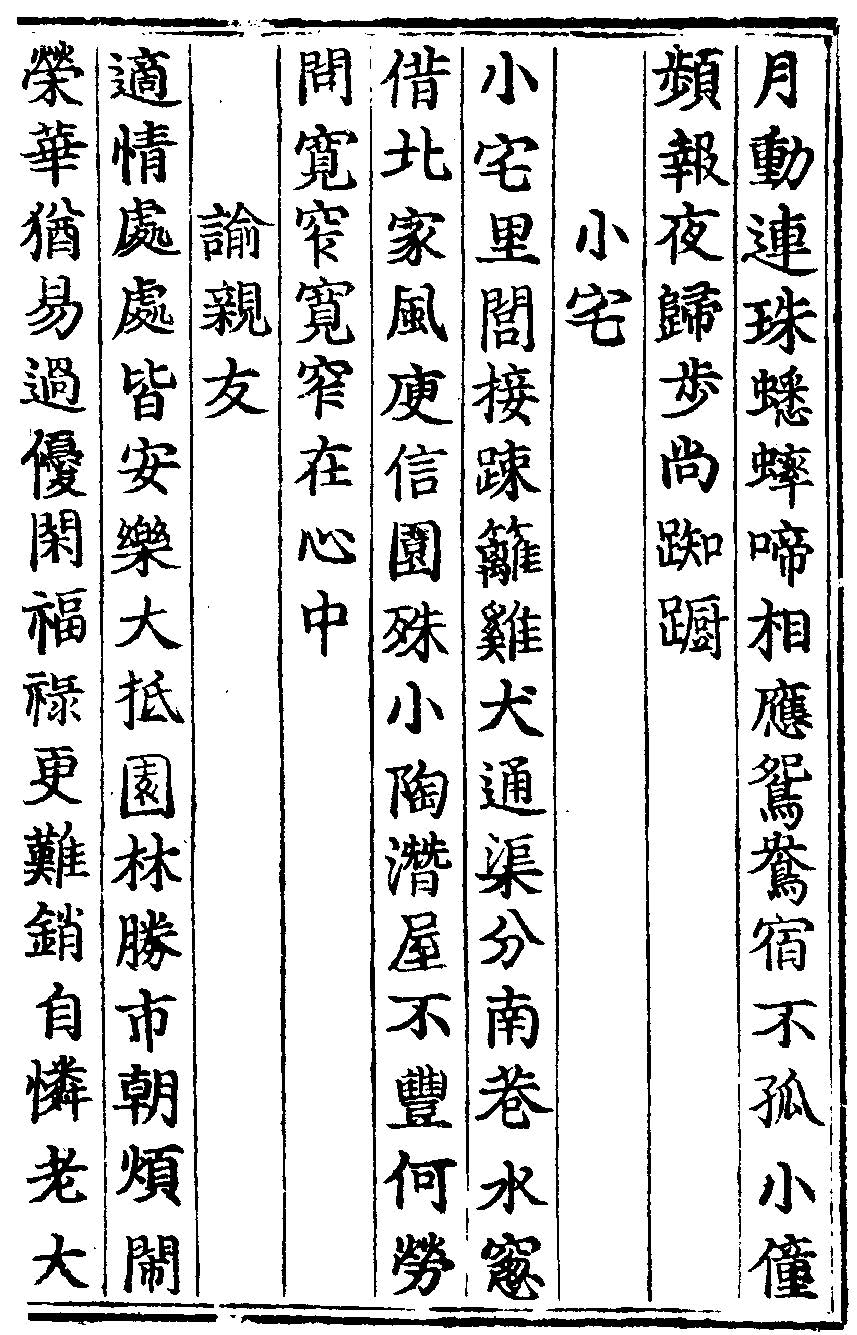 月動連珠蟋蟀啼相應鴛鴦宿不孤小僮
頻報夜歸步尚踟蹰
小宅
小宅里閭接踈籬雞犬通渠分南巷水窻
借北家風庾信園殊小陶潛屋不豐何勞
問寛窄寛窄在心中
諭親友
適情處處皆安樂大抵園林勝市朝煩鬧
榮華猶易過優閑福祿更難銷自憐老大